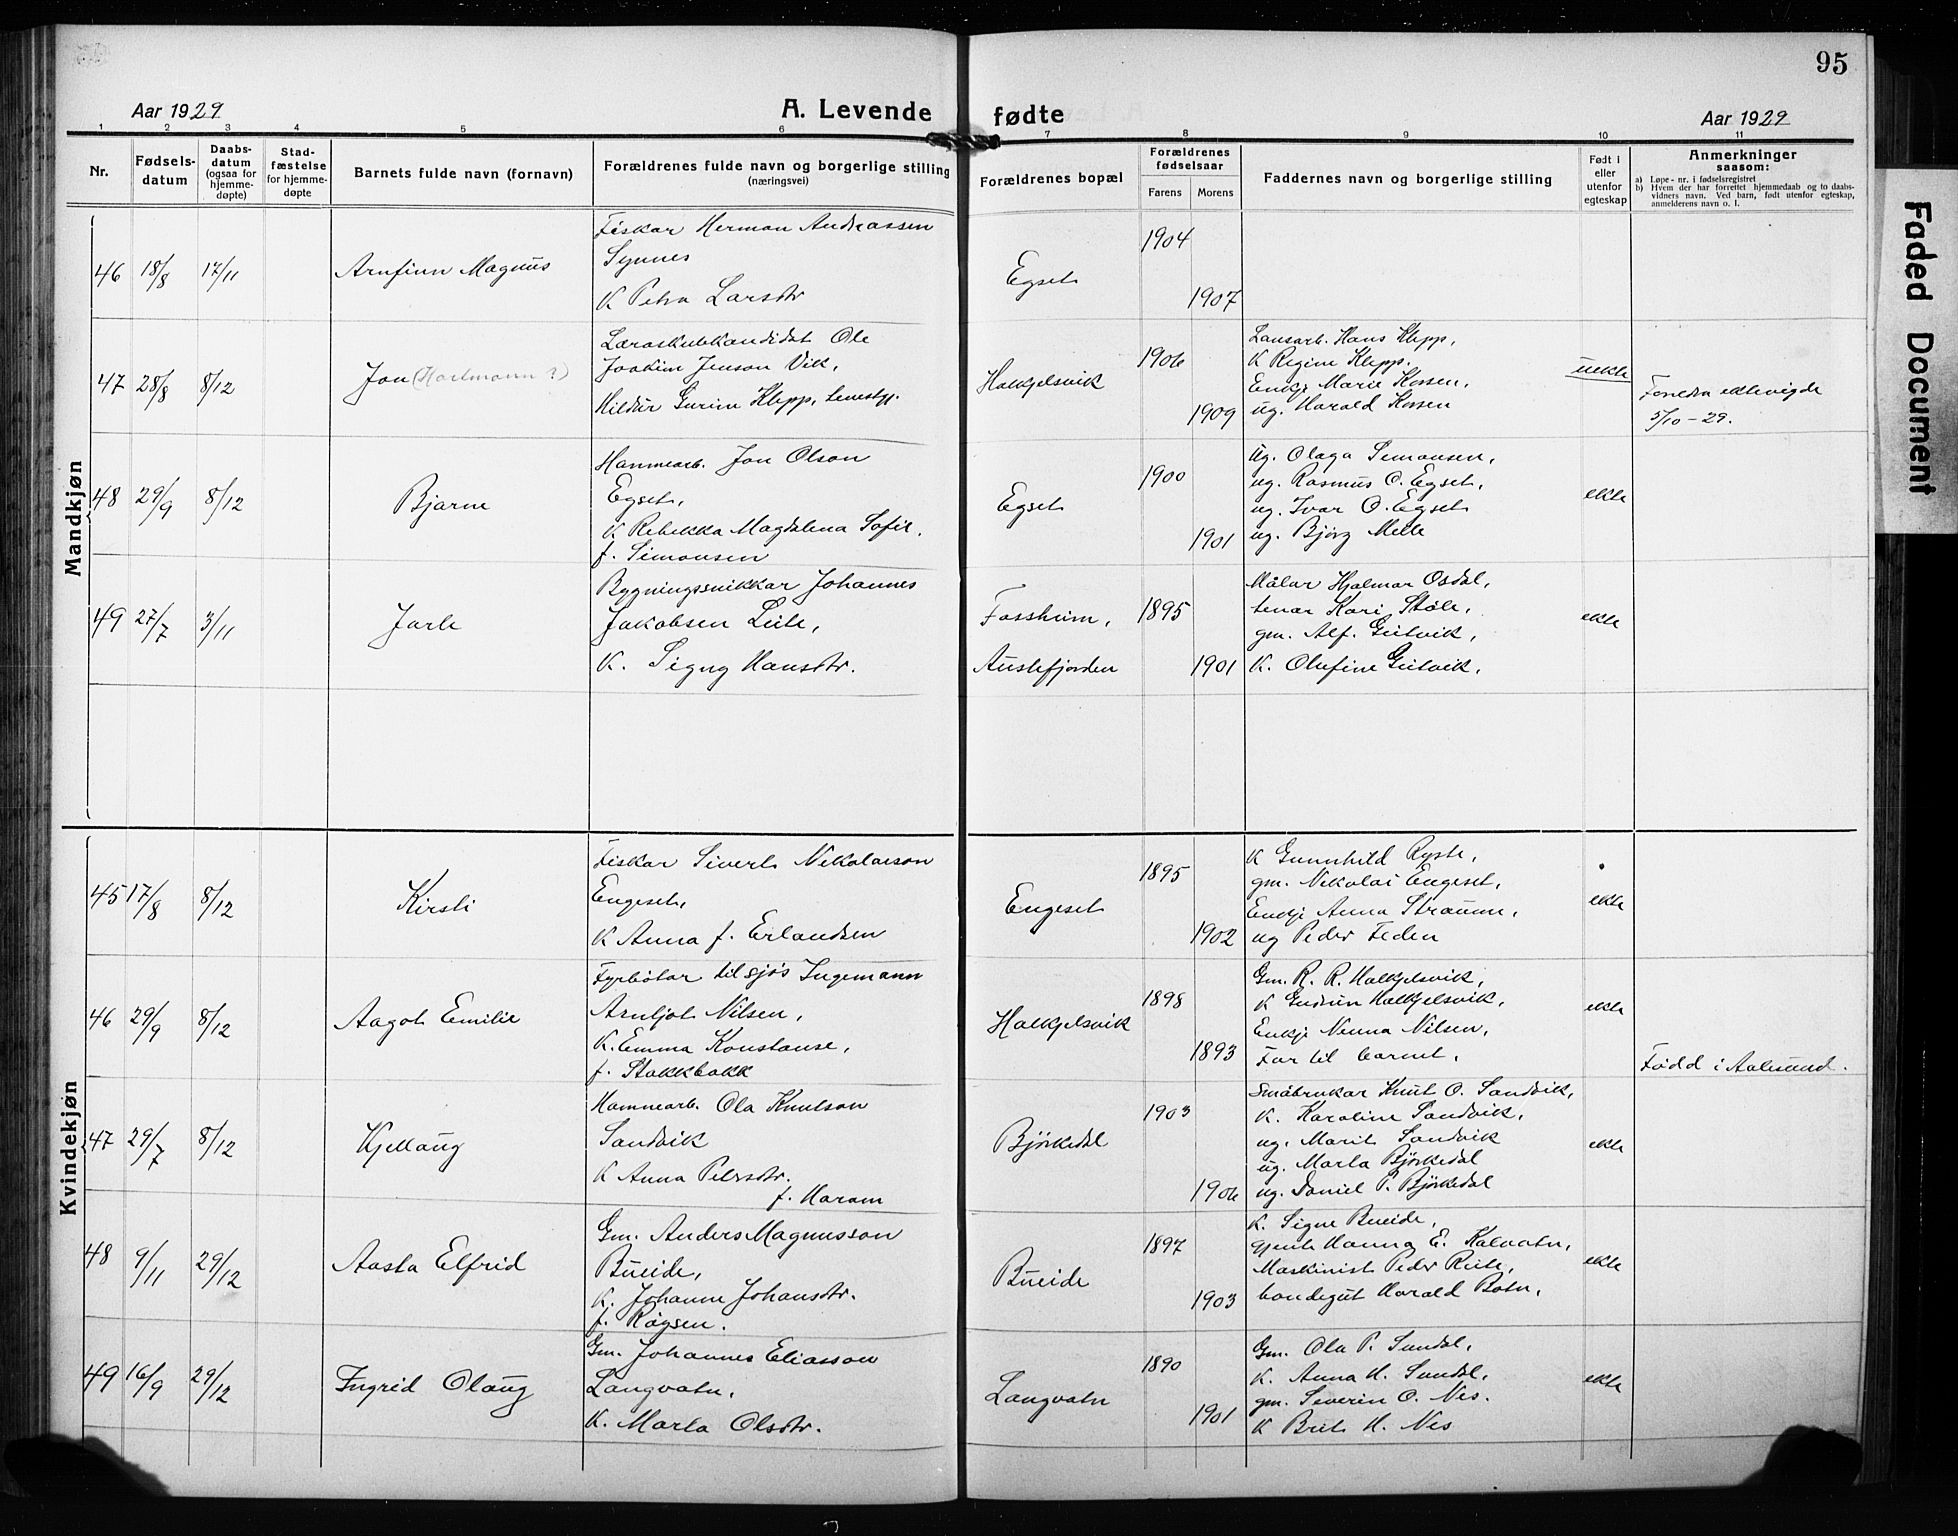 95
Aar 1929
A. Levende
fødte
Aar 1929
1 2 3 4 5 6 7 8 9 10 11
Nr.
Fødsels-
datum
Daabs-
datum
(ogsaa for
hjemme-
døpte)
Stad-
fæstelse
for hjemme-
døpte
Barnets fulde navn (fornavn)
Forældrenes fulde navn og borgerlige stilling
(næringsvei)
Forældrenes bopæl
Forældrenes
fødselsaar
Farens Morens
Faddernes navn og borgerlige stilling
Født i
eller
utenfor
egteskap
Anmerkninger
saasom:
a) Løpe - nr. i fødselsregistret
b) Hvem der har forrettet hjemmedaab og to daabs-
vidners navn. Ved barn, født utenfor egteskap,
anmelderens navn o. l.
Mandkjøn
46 18/8 17/11 Arnfinn Magnus
Fiskar Herman Andreassen
Synnes
K Petra Larsdtr
Egset
1904
1907
47 28/8 8/12 Jon (Hartmann?)
Læraskulekandidat Ole
Joakim Jenson Vik,
Hildur Gurine Klepp,
Halkjelsvik
1906
1909
Hans Klepp,
K Regine Klepp,
Enkje Marie Kossen,
ug. Harald Kossen
uekte
Foreldra ektevigde
5/10 - 29.
48 29/9 8/12 Bjarne
Hamnearb. Jon Olson
Egset,
K Rebekka Magdalena Sofie,
f. Simonsen
Egset
1900
1901
ug. Olaga Simonsen,
ug. Rasmus O. Egset,
ug. Ivar O. Egset
ug. Bjørg Melle
ekte
49 27/7 3/11 Jarle
Bygningssnikkar Johannes
Jakobsen Leite,
K. Signy Hansdtr.
Fossheim,
Austefjorden
1895
1901
Målar Hjalmar Osdal,
tenar Kari Støle,
gm. Alf. Geitvik,
K. Olufine Geitvik,
ekte
Kvindekjøn
45 17/8 8/12 Kirsti
Fiskar Sivert Nikolaison
Engeset,
K Anna f. Erlandsen
Engeset
1895
1902
K Gunnhild Ryste,
gm. Nikolai Engeset,
Enkje Anna Straumn,
ug Peder Feden
ekte
46 29/9 8/12 Aagot Emilie
Fyrbøtar til sjøs Ingemann
Arnljot Nilsen,
K. Emma Konstanse,
f. Stokkbakk
Halkjelsvik
1898
1893
Gm. R. R. Halkjelsvik,
K Gudrun Halkjelsvik,
Enkje Nenna Nilsen,
Far til barnet,
ekte
Fødd i Aalesund.
47 29/7 8/12 Kjellaug
Hamnearb. Ola Knutson
Sandvik
K Anna Petersdtr.
f. Haram
Bjørkedal
1903
1906
Småbrukar Knut O. Sandvik,
K. Karoline Sandvik,
ug. Marit Sandvik
ug. Marta Bjørkedal
ug. Daniel P. Bjørkedal
ekte
48 9/11 29/12 Aasta Elfrid
Gm. Anders Magnusson
Bueide,
K. Johanne Johansdtr.
f. Røysen.
Bueide
1897
1903
K. Signe Bueide,
gjente Hanna E. Kalvatn,
Maskinist Peder Reite,
bondegut Harald Botn,
ekte
49 16/9 29/12 Ingrid Olaug
Gm. Johannes Eliasson
Langvatn,
K. Marta Olsdtr.
Langvatn
1890
1901
Gm. Ola P. Sundal,
K. Anna H. Sundal,
gm. Severin O. Nes.
K Brit H. Nes
ekte
Faded Document